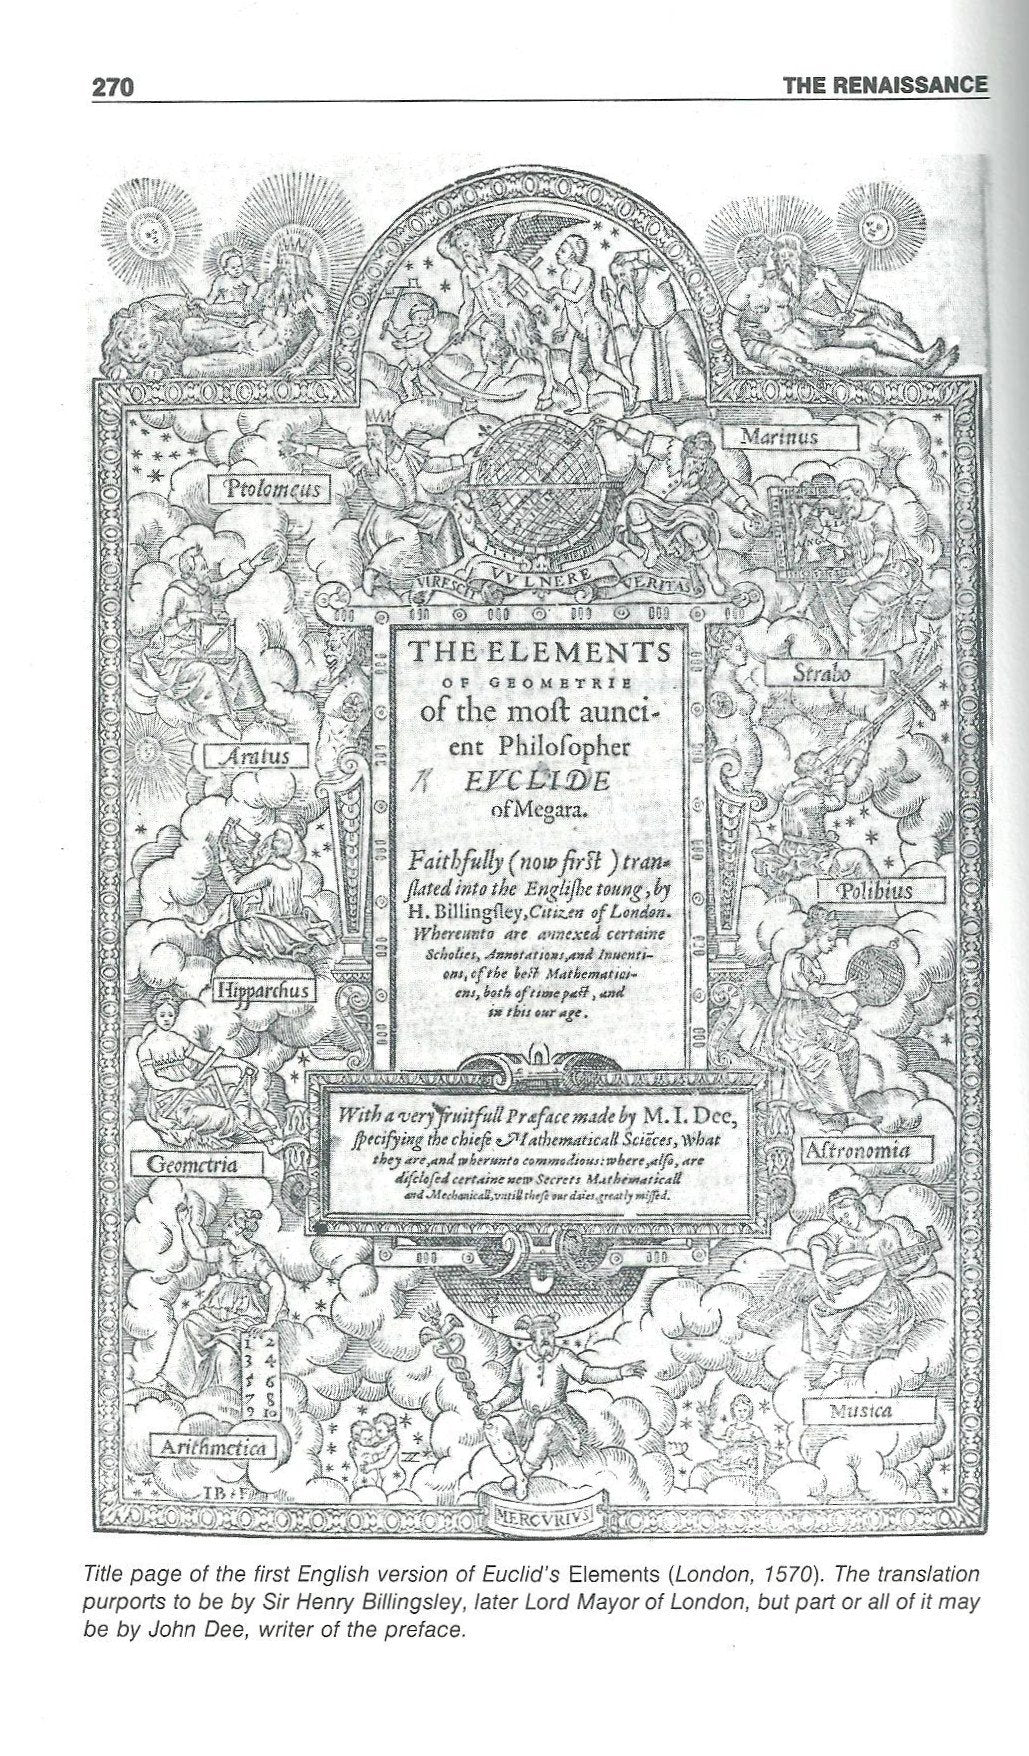 270
THE RENAISSANCE
Ptolomeus
Marinus
VIRESCIT VVLNERE VERITAS
Aratus
Strabo
Hipparchus
Polibius
THE ELEMENTS
OF GEOMETRIE
of the moſt aunci-
ent Philoſopher
EVCLIDE
of Megara.
Faithfully (now first) tran-
ſlated into the Engliſhe toung, by
H. Billingſley, Citizen of London.
Whereunto are annexed certaine
Scholies, Annotations, and Inuenti-
ons, of the best Mathematici-
ens, both of time past, and
in this our age.
With a very fruitfull Præface made by M. I. Dee,
ſpecifying the chiefe Mathematicall Sciēces, what
they are, and wherunto commodious: where, alſo, are
diſcloſed certaine new Secrets Mathematicall
and Mechanicall, vntill theſe our daies, greatly miſſed.
Geometria
Astronomia
1 2
3 4
5 6
7 8
9 10
Arithmetica
Musica
IB·F
MERCVRIVS
Title page of the first English version of Euclid's Elements (London, 1570). The translation
purports to be by Sir Henry Billingsley, later Lord Mayor of London, but part or all of it may
be by John Dee, writer of the preface.